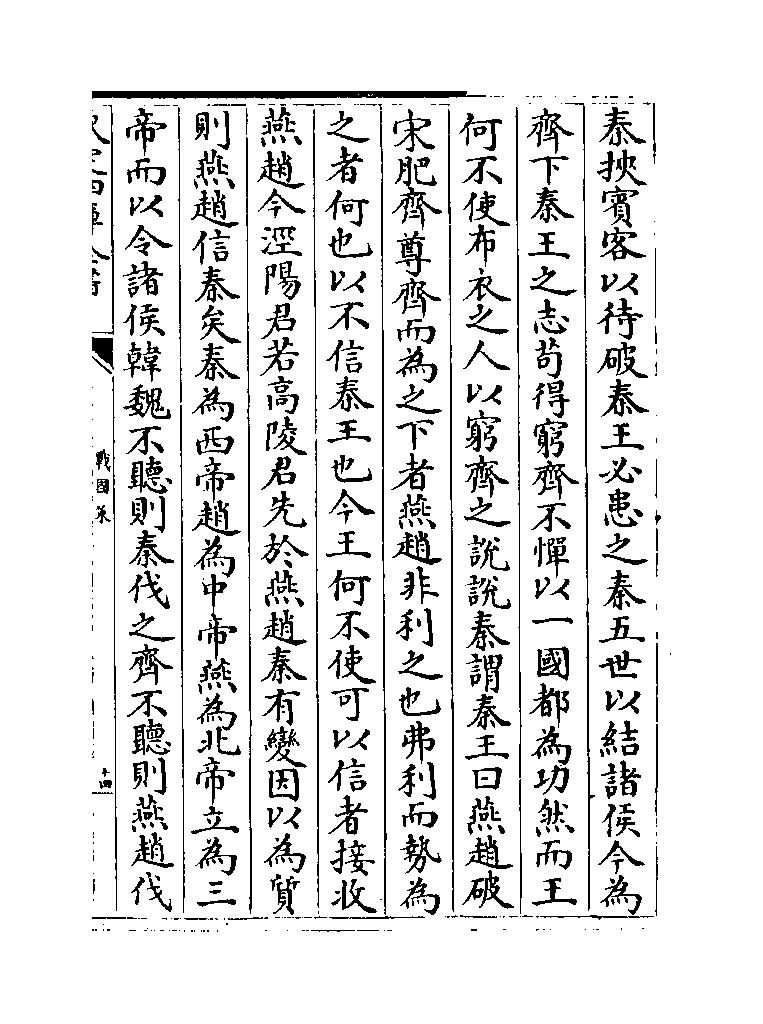 秦挾賓客以待破秦王必患之秦五世以結諸侯今為
齊下秦王之志苟得窮齊不憚以一國都為功然而王
何不使布衣之人以窮齊之說說秦謂秦王曰燕趙破
宋肥齊尊齊而為之下者燕趙非利之也弗利而勢為
之者何也以不信秦王也今王何不使可以信者接收
燕趙今涇陽君若高陵君先於燕趙秦有變因以為質
則燕趙信秦矣秦為西帝趙為中帝燕為北帝立為三
帝而以令諸侯韓魏不聽則秦伐之齊不聽則燕趙伐
戰國策
十四